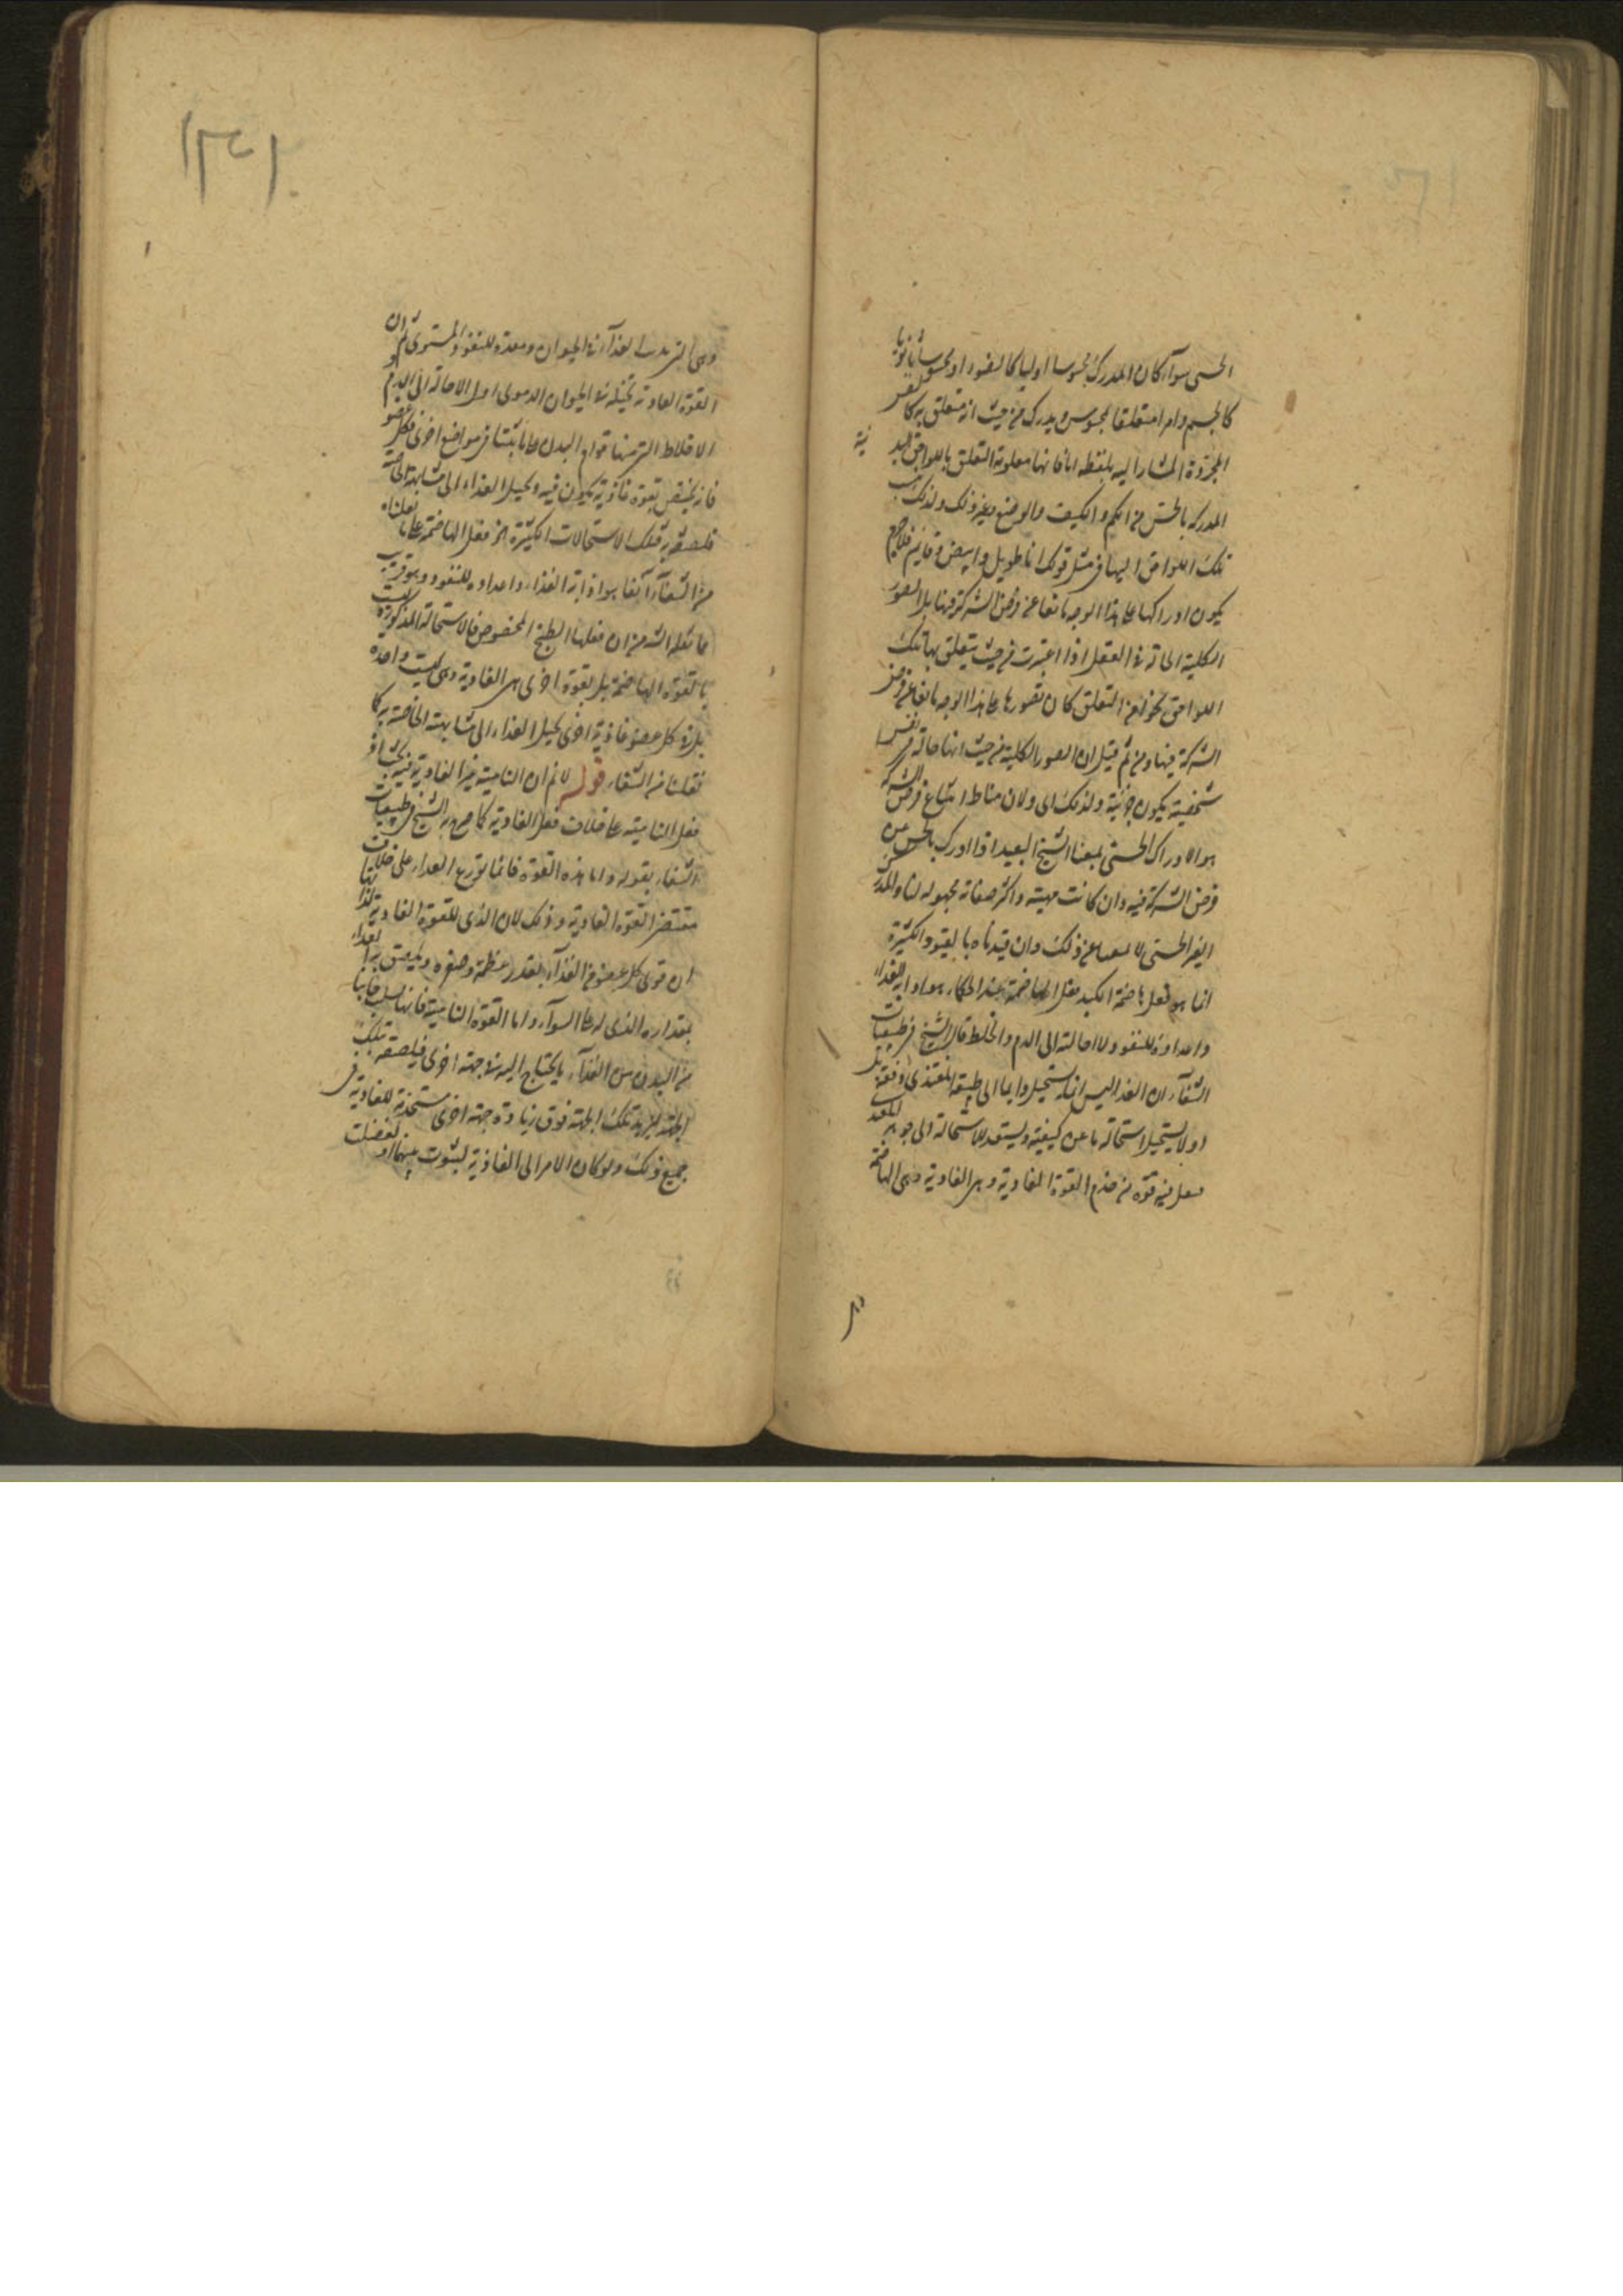 الحسى سوآء كان المدرك محسوسا اوليا كالضوء او محسوسا ثانويا
كالجسم وامرا متعلقا بمحسوس ويدرك من حيث انه متعلق به كالنفس
المجردة المشار اليه بلفظه انا فانها معلومة التعلق باللواحق البدنية
المدركة بالحس من الكم والكيف والوضع وغير ذلك ولذلك ينسب
تلك اللواحق اليها فى مثل قولك انا طويل وابيض وقايم فلا جرم
يكون ادراكها على هذا الوجه مانعا عن فرض الشركة فيها بل الصور
الكلية الحالة فى العقل اذا اعتبرت من حيث يتعلق بها تلك
اللواحق نحوا من التعلق كان تصورها على هذا الوجه مانعا عن فرض
الشركة فيها ومن ثم قيل ان الصور الكلية من حيث انها حالة فى نفس
شخصية يكون جزئية ولذلك اى ولان مناط امتناع فرض الشركة
هو الادراك الحسى يمنعنا الشبح البعيد اذا ادرك بالحس عن
فرض الشركة فيه وان كانت مهيته واكثر صفاته مجهولة لنا والمدرك
الغير الحسى لا يمنعنا عن ذلك وان قيدناه بالقيود الكثيرة
انما هو فعل هاضمة الكبد فعل الهاضمة عند الحكماء هو اذابة الغذاء
واعداده للنفوذ لا احالته الى الدم والخلط قال الشيخ فى طبيعيات
الشفآء ان الغذا ليس انما يستحيل دايما الى طبيعة المغتذى دفعة بل
اولا يستحيل استحالة ما عن كيفيته ويستعد للاستحالة الى جوهر المغتذى
فيفعل فيه قوة من خدم القوة الغاذية وهى الهاضمة
وهى التى يذيب الغذآء فى الحيوان ومعده للنفوذ المستوى ثم ان
القوة الغاذية تحيله فى الحيوان الدموى اول الاحالة الى الدم و
الاخلاط التى منها قوام البدن على ما بيّنا فى مواضع اخرى فكل عضو
فانه يختص بقوة غاذية يكون فيه ويحيل الغذاء الى مشابهته الخاصة
فلصقه به فتلك الاستحالات الكثيرة اثر فعل الهاضمة على ما نقلناه
من الشفآء آنفا هو اذابة الغذاء واعداده للنفوذ وهو قريب
مما نقله الشه من ان فعلها الطبخ المخصوص فالاستحالة المذكورة ليست
بالقوة الهاضمة بل بقوة اخرى هى الغاذية وهى ليست واحدة
بل فى كل عضو غاذية اخرى يحيل الغذاء الى مشابهته الخاصة به كما
نقلنا من الشفاء قوله لا نم ان النامية غير الغاذية فيه بحث اذ
فعل النامية على خلاف فعل الغاذية كما صرح به الشيخ فى طبيعيات
الشفاء بقوله واما هذه القوة فانما توزع الغداء على خلاف
مقتضى القوة الغاذية وذلك لان الذى للقوة الغاذية لذاتها
ان توتى كل عضو من الغذآء بقدر عظمه وصغره ويلصق به من الغداء
بمقداره الذى له على السوآء واما القوة النامية فانها تسلب جانبا
من البدن من الغذآء ما يحتاج اليه فى جهة اخرى فيلصقه بتلك
الجهة ليزيد تلك الجهة فوق زيادة جهة اخرى مستخدمة للغاذية فى
جميع ذلك ولو كان الامر الى الغاذية لسوت بينها او لفضلت